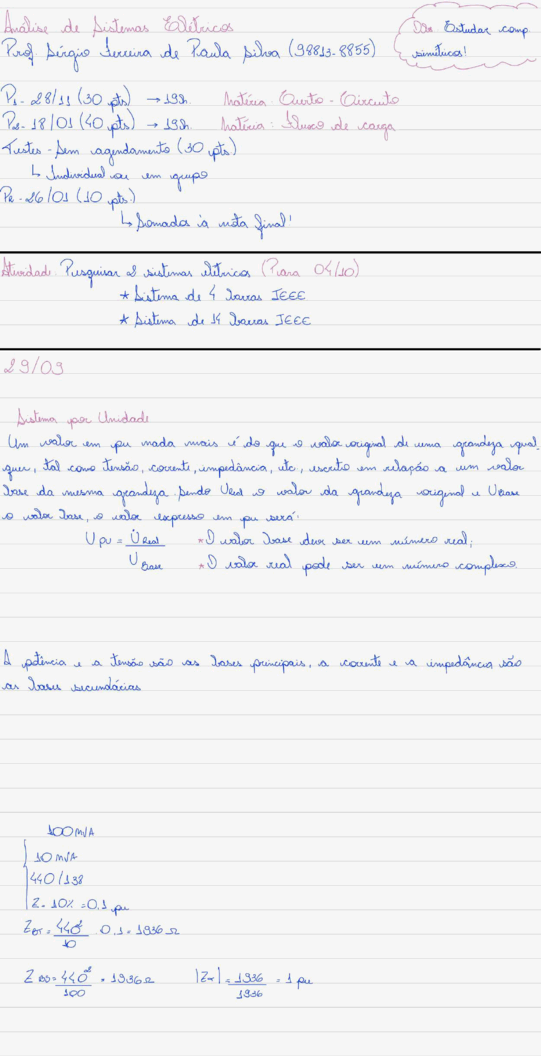 Análise de Sistemas Elétricos
Obs: Estudar comp
simétricos!
Prof: Sérgio Ferreira de Paula Silva (98813-8855)
P1 - 28/11 (30 pts) → 19h. Matéria: Curto-Circuito
P2 - 18/01 (40 pts) → 19h. Matéria: Fluxo de carga
Testes - Sem agendamento (30 pts)
↳ Individual ou em grupo
PR - 26/01 (10 pts)
↳ Somados à nota final!
Atividade: Pesquisar 2 sistemas elétricos (Para 04/10)
* Sistema de 4 barras IEEE
* Sistema de 14 barras IEEE
29/09
Sistema por Unidade
Um valor em pu nada mais é do que o valor original de uma grandeza qual-
quer, tal como tensão, corrente, impedância, etc, escrito em relação a um valor
base da mesma grandeza. Sendo Vreal o valor da grandeza original e VBase
o valor base, o valor expresso em pu será:
Vpu = V̇Real / VBase * O valor base deve ser um número real;
* O valor real pode ser um número complexo
A potência e a tensão são as bases principais, a corrente e a impedância são
as bases secundárias
100 MVA
10 MVA
440/138
Z = 10% = 0.1 pu
ZBT = 440² / 10 . 0.1 = 1936 Ω
Z = 440² / 100 = 1936 Ω |ZT| = 1936 / 1936 = 1 pu